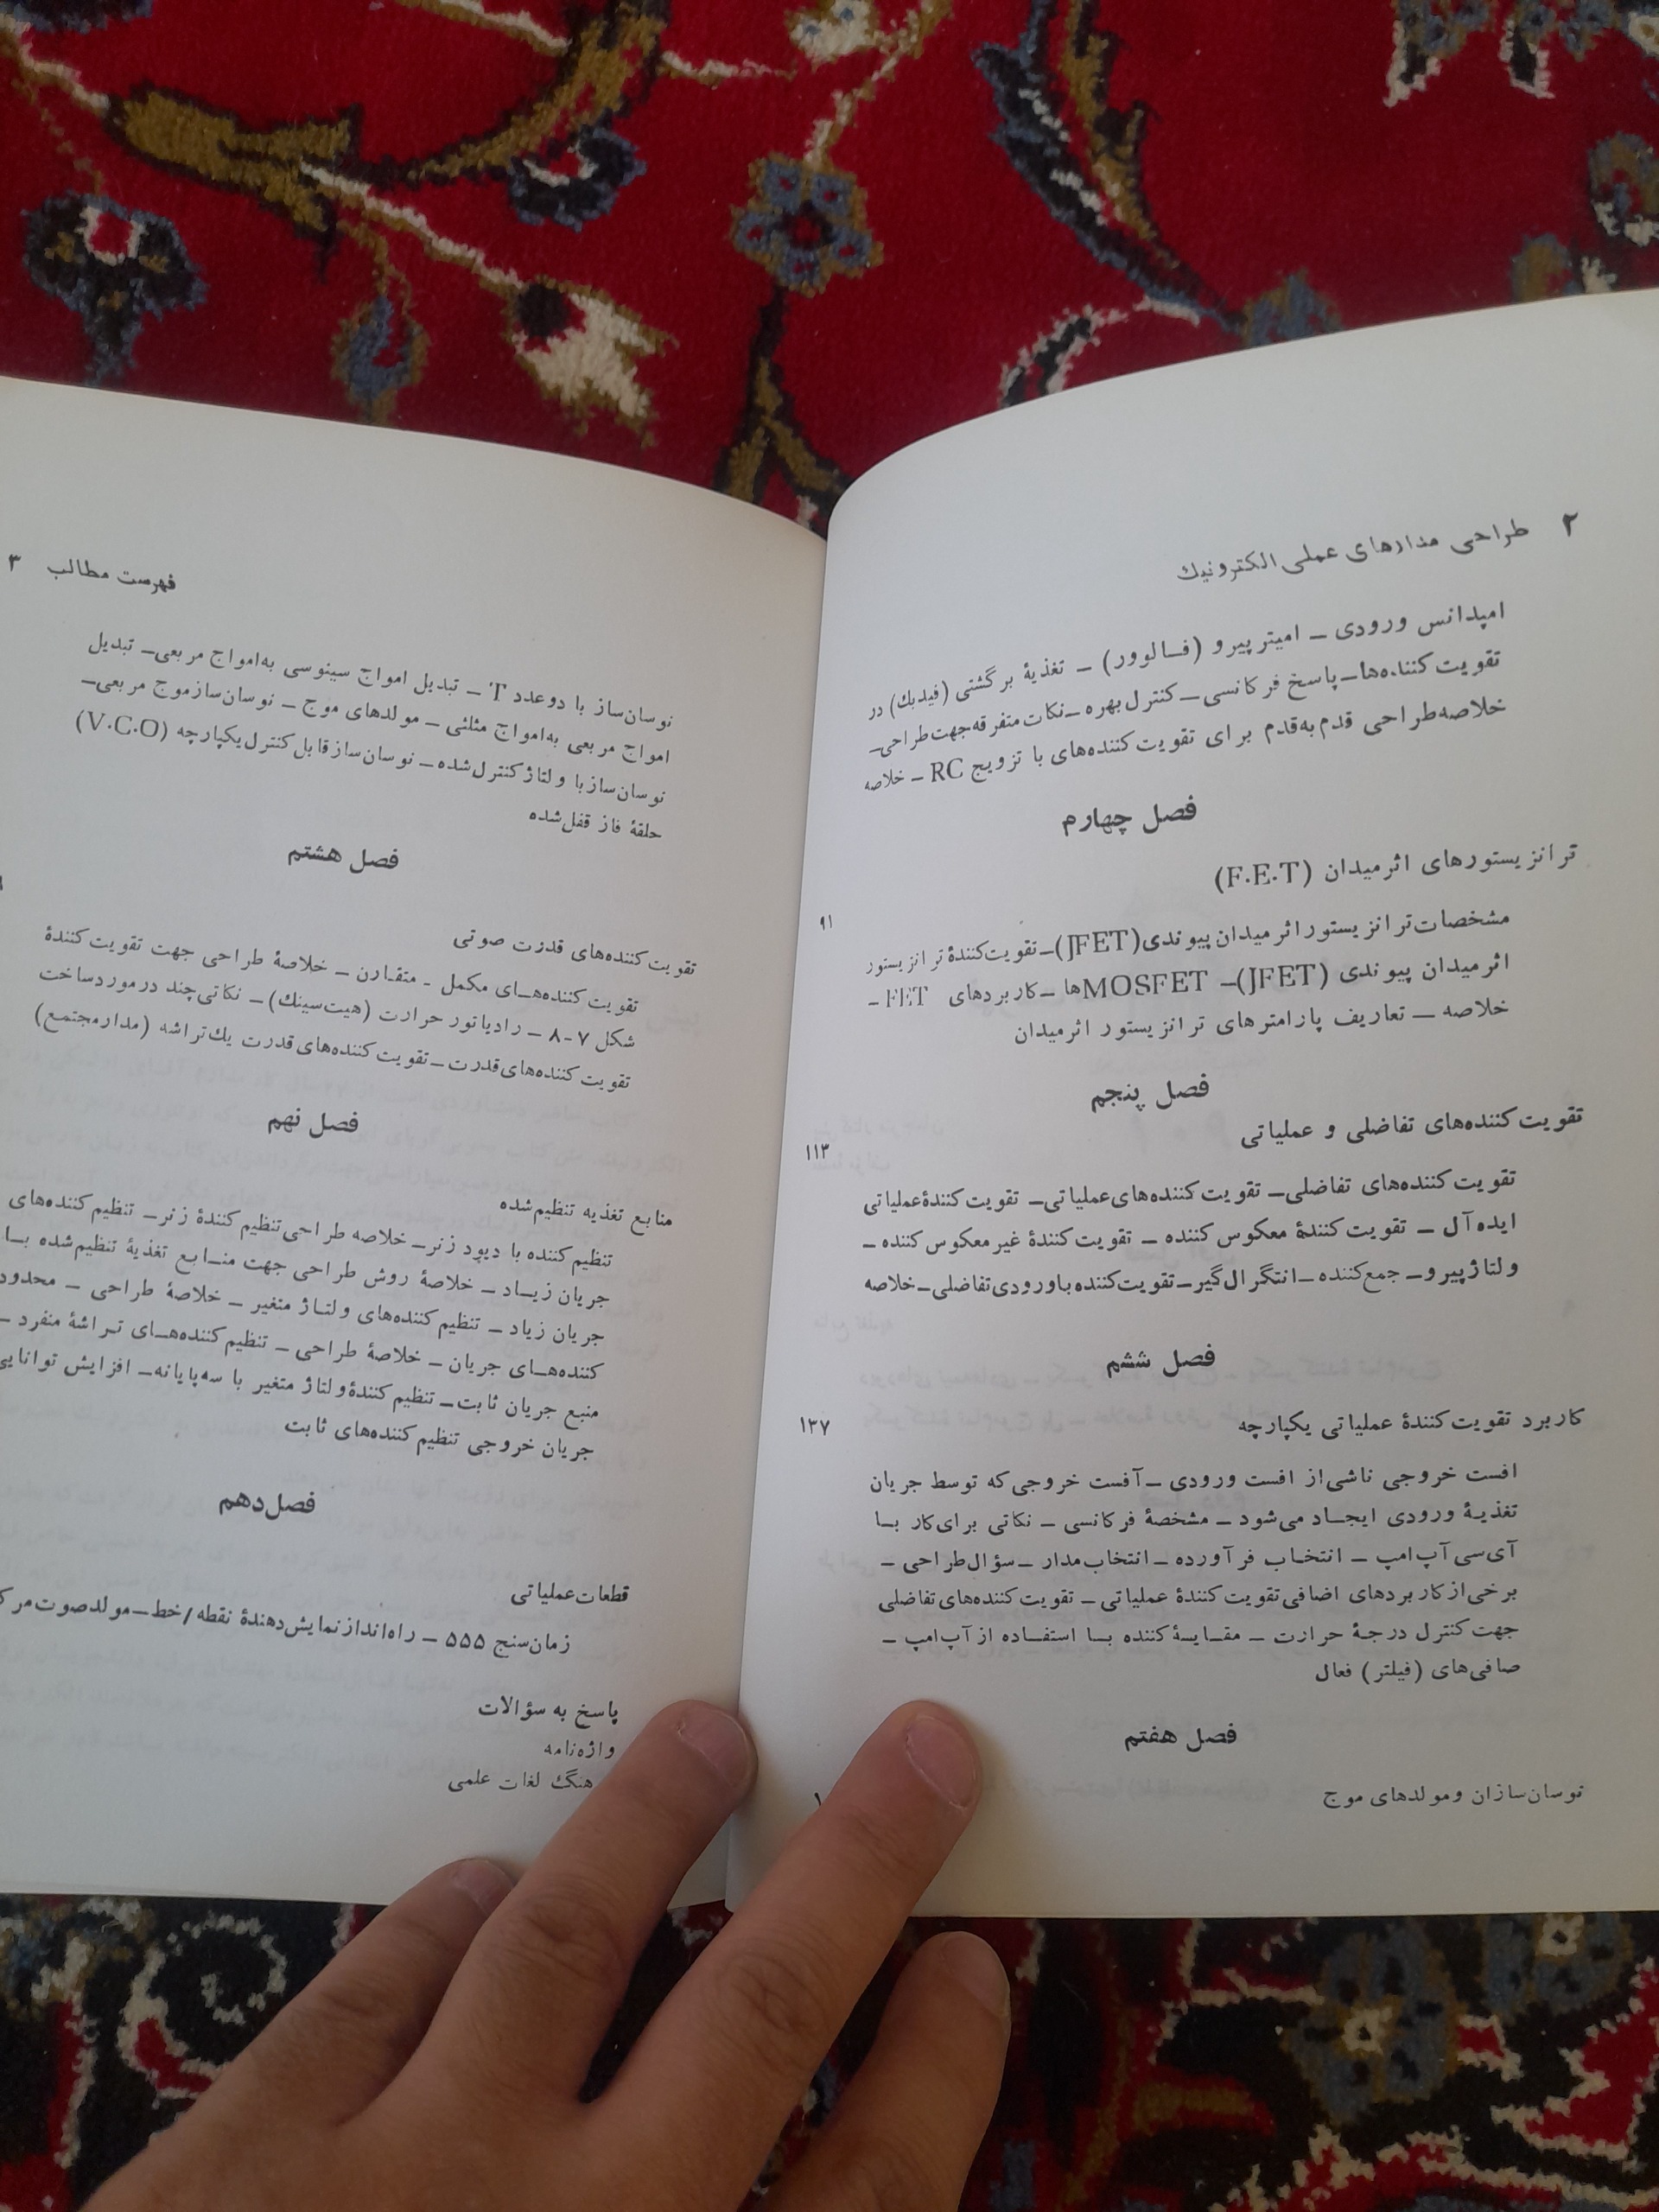 ۲ طراحی مدارهای عملی الکترونیك
امپدانس ورودی ــ امیتر پیرو (فــالوور) ــ تغذیهٔ برگشتی (فیدبك) در
تقویت کننده‌ها ــ پاسخ فرکانسی ــ کنترل بهره ــ نکات متفرقه جهت طراحی ــ
خلاصه طراحی قدم به قدم برای تقویت کننده‌های با تزویج RC ــ خلاصه
فصل چهارم
ترانزیستورهای اثر میدان (F.E.T)
۹۱
مشخصات ترانزیستور اثر میدان پیوندی (JFET) ــ تقویت کنندهٔ ترانزیستور
اثر میدان پیوندی (JFET) ــ MOSFET ها ــ کاربردهای FET ــ
خلاصه ــ تعاریف پارامترهای ترانزیستور اثر میدان
فصل پنجم
تقویت کننده‌های تفاضلی و عملیاتی
۱۱۳
تقویت کننده‌های تفاضلی ــ تقویت کننده‌های عملیاتی ــ تقویت کنندهٔ عملیاتی
ایده آل ــ تقویت کنندهٔ معکوس کننده ــ تقویت کنندهٔ غیر معکوس کننده ــ
ولتاژ پیرو ــ جمع کننده ــ انتگرال گیر ــ تقویت کننده با ورودی تفاضلی ــ خلاصه
فصل ششم
کاربرد تقویت کنندهٔ عملیاتی یکپارچه
۱۳۷
افست خروجی ناشی از افست ورودی ــ آفست خروجی که توسط جریان
تغذیهٔ ورودی ایجــاد می‌شود ــ مشخصهٔ فرکانسی ــ نکاتی برای کار بــا
آی سی آپ امپ ــ انتخــاب فرآورده ــ انتخاب مدار ــ سؤال طراحی ــ
برخی از کاربردهای اضافی تقویت کنندهٔ عملیاتی ــ تقویت کننده‌های تفاضلی
جهت کنترل درجهٔ حرارت ــ مقــایسهٔ کننده بــا استفــاده از آپ امپ ــ
صافی‌های (فیلتر) فعال
فصل هفتم
نوسان سازان و مولدهای موج
فهرست مطالب ۳
نوسان ساز با دو عدد T ــ تبدیل امواج سینوسی به امواج مربعی ــ تبدیل
امواج مربعی به امواج مثلثی ــ مولدهای موج ــ نوسان ساز موج مربعی ــ
نوسان ساز با ولتاژ کنترل شده ــ نوسان ساز قابل کنترل یکپارچه (V.C.O)
حلقهٔ فاز قفل شده
فصل هشتم
تقویت کننده‌های قدرت صوتی
تقویت کننده‌هــای مکمل ـ متقــارن ــ خلاصهٔ طراحی جهت تقویت کنندهٔ
شکل ۷-۸ ــ رادیاتور حرارت (هیت سینك) ــ نکاتی چند در مورد ساخت
تقویت کننده‌های قدرت ــ تقویت کننده‌های قدرت یك تراشه (مدار مجتمع)
فصل نهم
منابع تغذیه تنظیم شده
تنظیم کننده با دیود زنر ــ خلاصه طراحی تنظیم کنندهٔ زنر ــ تنظیم کننده‌های
جریان زیــاد ــ خلاصهٔ روش طراحی جهت منــابع تغذیهٔ تنظیم شده بــا
جریان زیاد ــ تنظیم کننده‌های ولتــاژ متغیر ــ خلاصهٔ طراحی ــ محدود
کننده‌هــای جریان ــ خلاصهٔ طراحی ــ تنظیم کننده‌هــای تراشهٔ منفرد ــ
منبع جریان ثابت ــ تنظیم کنندهٔ ولتاژ متغیر با سه پایانه ــ افزایش توانایی
جریان خروجی تنظیم کننده‌های ثابت
فصل دهم
قطعات عملیاتی
زمان سنج ۵۵۵ ــ راه انداز نمایش دهندهٔ نقطه/خط ــ مولد صوت
پاسخ به سؤالات
واژه نامه
هنگ لغات علمی